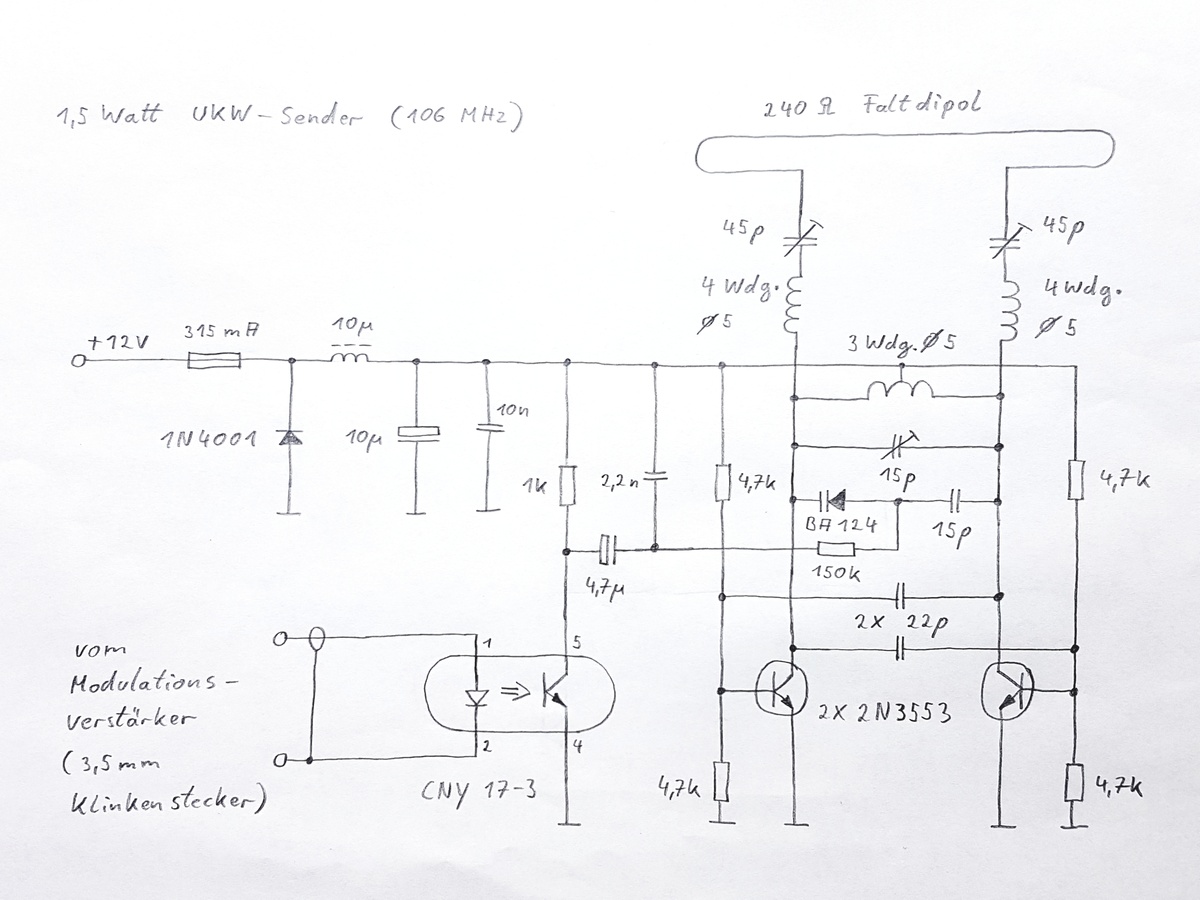 1,5 Watt UKW-Sender (106 MHz)
240 Ω Faltdipol
45p
45p
4 Wdg.
ø5
4 Wdg.
ø5
+12V
315 mA
10µ
3 Wdg. ø5
1N4001
10µ
10n
1k
2,2n
4,7k
15p
4,7k
BA124
15p
150k
4,7µ
2x 22p
vom
Modulations-
verstärker
(3,5mm
Klinkenstecker)
1
5
2
4
CNY 17-3
2x 2N3553
4,7k
4,7k